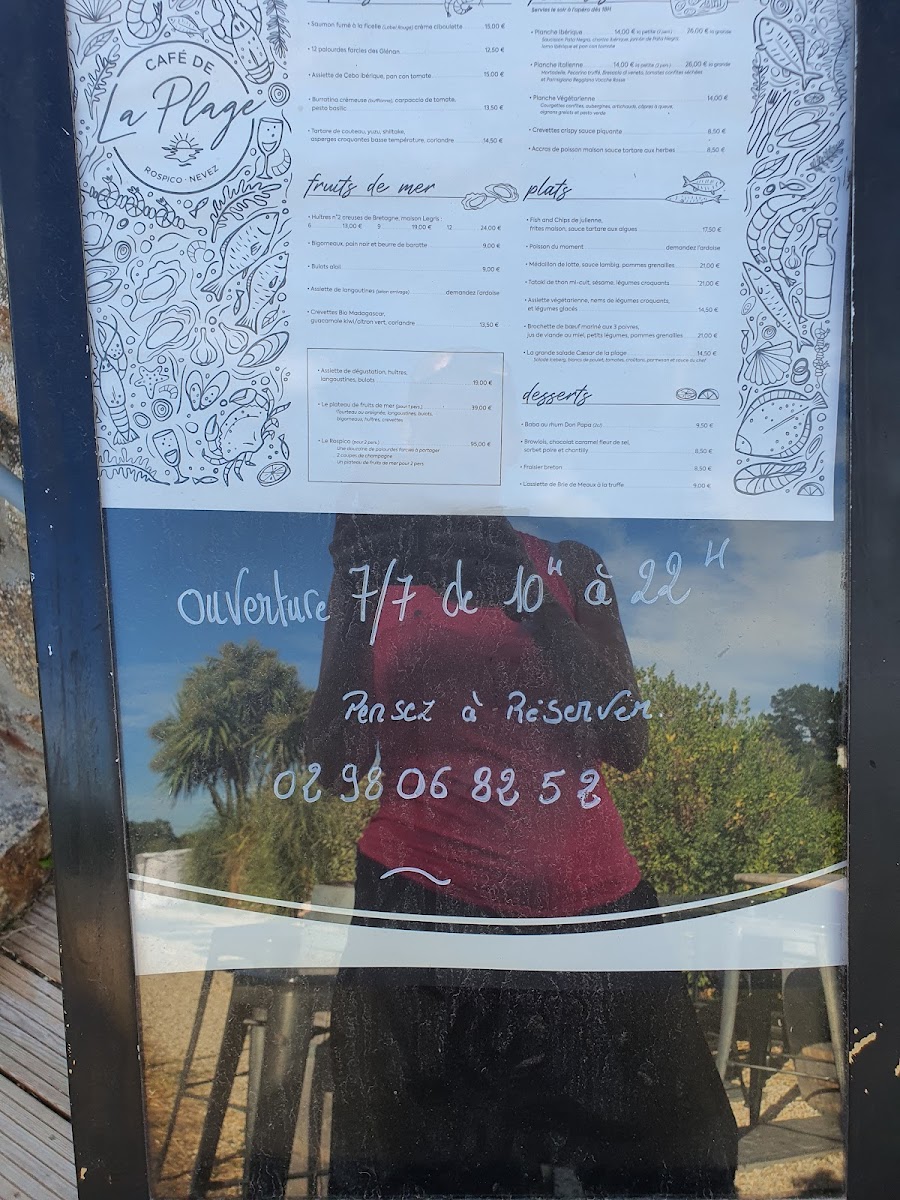 CAFÉ DE
La Plage
ROSPICO · NEVEZ
• Saumon fumé à la ficelle (Label Rouge) crème ciboulette 15,00 €
• 12 palourdes farcies des Glénan 12,50 €
• Assiette de Cebo ibérique, pan con tomate 15,00 €
• Burratina crémeuse (bufflonne), carpaccio de tomate,
pesto basilic 13,50 €
• Tartare de couteau, yuzu, shiitake,
asperges croquantes basse température, coriandre 14,50 €
fruits de mer
• Huîtres n°2 creuses de Bretagne, maison Legris :
6 13,00 € 9 19,00 € 12 24,00 €
• Bigorneaux, pain noir et beurre de baratte 9,00 €
• Bulots aïoli 9,00 €
• Assiette de langoustines (selon arrivage) demandez l'ardoise
• Crevettes Bio Madagascar,
guacamole kiwi/citron vert, coriandre 13,50 €
• Assiette de dégustation, huîtres,
langoustines, bulots 19,00 €
• Le plateau de fruits de mer (pour 1 pers.) 39,00 €
Tourteau ou araignée, langoustines, bulots,
bigorneaux, huîtres, crevettes
• Le Rospico (pour 2 pers.) 95,00 €
Une douzaine de palourdes farcies à partager
2 coupes de champagne
Un plateau de fruits de mer pour 2 pers
Servies le soir à l'apéro dès 18H
• Planche Ibérique 14,00 € la petite (1 pers.) 26,00 € la grande
Saucisson Pata Negra, chorizo ibérique, jambon de Pata Negra,
lomo ibérique et pan con tomate
• Planche Italienne 14,00 € la petite (1 pers.) 26,00 € la grande
Mortadelle, Pecorino truffé, Bresaola di veneto, tomates confites séchées
et Parmigiano Reggiano Vacche Rosse
• Planche Végétarienne 14,00 €
Courgettes confites, aubergines, artichauds, câpres à queue,
oignons grelots et pesto verde
• Crevettes crispy sauce piquante 8,50 €
• Accras de poisson maison sauce tartare aux herbes 8,50 €
plats
• Fish and Chips de julienne,
frites maison, sauce tartare aux algues 17,50 €
• Poisson du moment demandez l'ardoise
• Médaillon de lotte, sauce lambig, pommes grenailles 21,00 €
• Tataki de thon mi-cuit, sésame, légumes croquants 21,00 €
• Assiette végétarienne, nems de légumes croquants,
et légumes glacés 14,50 €
• Brochette de bœuf mariné aux 3 poivres,
jus de viande au miel, petits légumes, pommes grenailles 21,00 €
• La grande salade Cæsar de la plage 14,50 €
Salade iceberg, blancs de poulet, tomates, croûtons, parmesan et sauce du chef
desserts
• Baba au rhum Don Papa 9,50 €
• Browlois, chocolat caramel fleur de sel,
sorbet poire et chantilly 8,50 €
• Fraisier breton 8,50 €
• L'assiette de Brie de Meaux à la truffe 9,00 €
ouverture 7/7 de 10H à 22H
Pensez à Réserver.
02 98 06 82 52